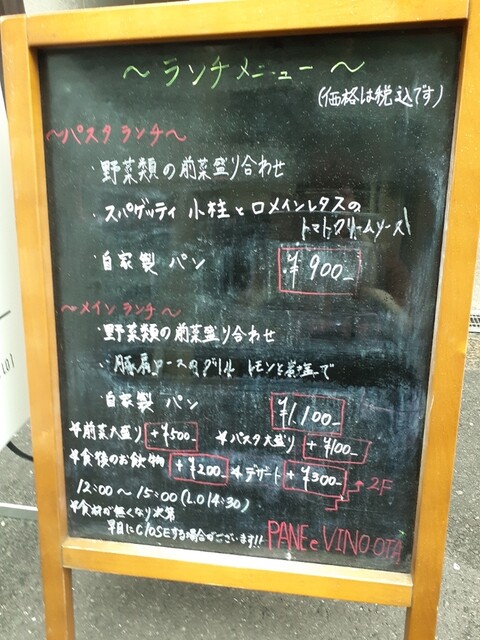 ～ランチメニュー～
(価格は税込です)
～パスタランチ～
・野菜類の前菜盛り合わせ
・スパゲッティ 小柱とロメインレタスの
トマトクリームソース
・自家製パン ¥900-
～メインランチ～
・野菜類の前菜盛り合わせ
・豚肩ロースのグリル レモンと藻塩で
・自家製パン ¥1,100-
*前菜大盛り +¥500- *パスタ大盛り +¥100-
*食後のお飲み物 +¥200- *デザート +¥300-
2F
12:00～15:00(L.O 14:30)
*食材が無くなり次第
早目にCLOSEする場合がございます!!
PANE e VINO OTA